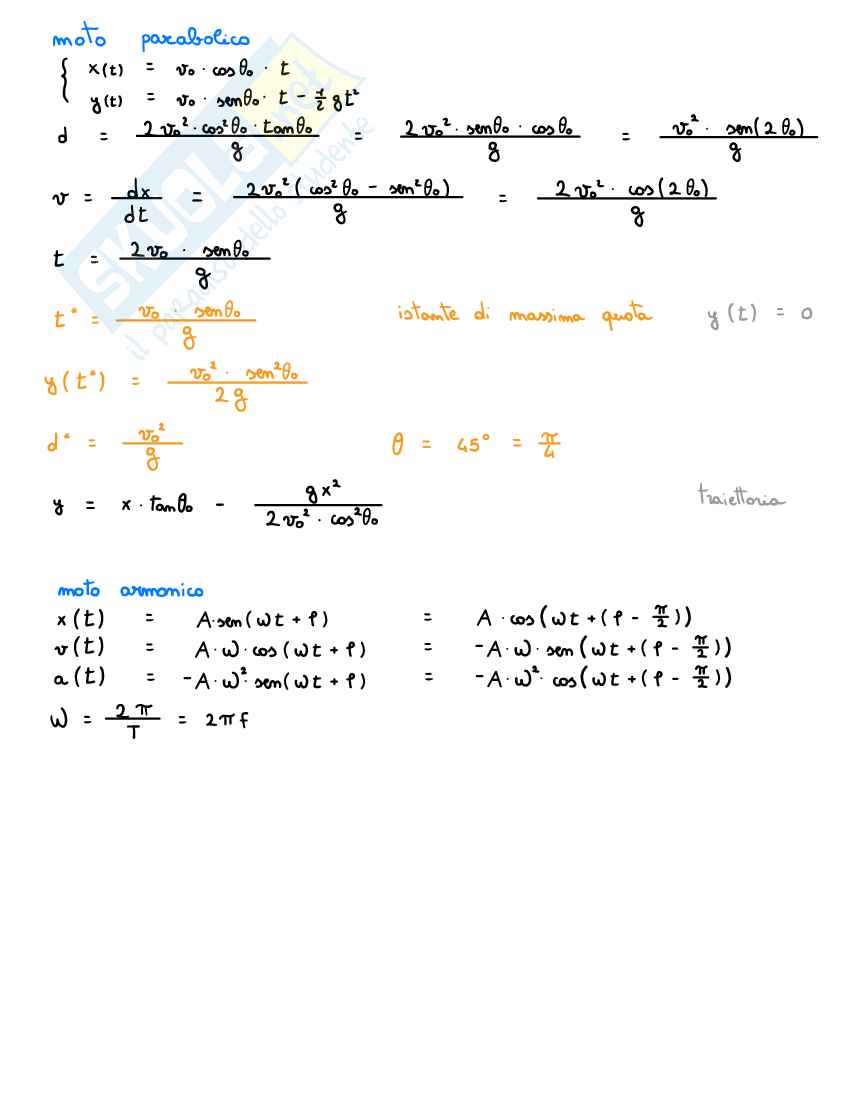 moto parabolico
x(t) = v₀ · cosθ₀ · t
y(t) = v₀ · senθ₀ · t - 1/2 gt²
d = 2v₀² · cos²θ₀ · tanθ₀ / g = 2v₀² · senθ₀ · cosθ₀ / g = v₀² · sen(2θ₀) / g
v = dx/dt = 2v₀²(cos²θ₀ - sen²θ₀) / g = 2v₀² · cos(2θ₀) / g
t = 2v₀ · senθ₀ / g
t* = v₀ · senθ₀ / g istante di massima quota y(t) = 0
y(t*) = v₀² · sen²θ₀ / 2g
d* = v₀² / g θ = 45° = π/4
y = x · tanθ₀ - gx² / 2v₀² · cos²θ₀ traiettoria
moto armonico
x(t) = A·sen(ωt + φ) = A · cos(ωt + (φ - π/2))
v(t) = A·ω·cos(ωt + φ) = -A·ω·sen(ωt + (φ - π/2))
a(t) = -A·ω²·sen(ωt + φ) = -A·ω²·cos(ωt + (φ - π/2))
ω = 2π/T = 2πf
SKUOLA.net
il paradiso dello studente